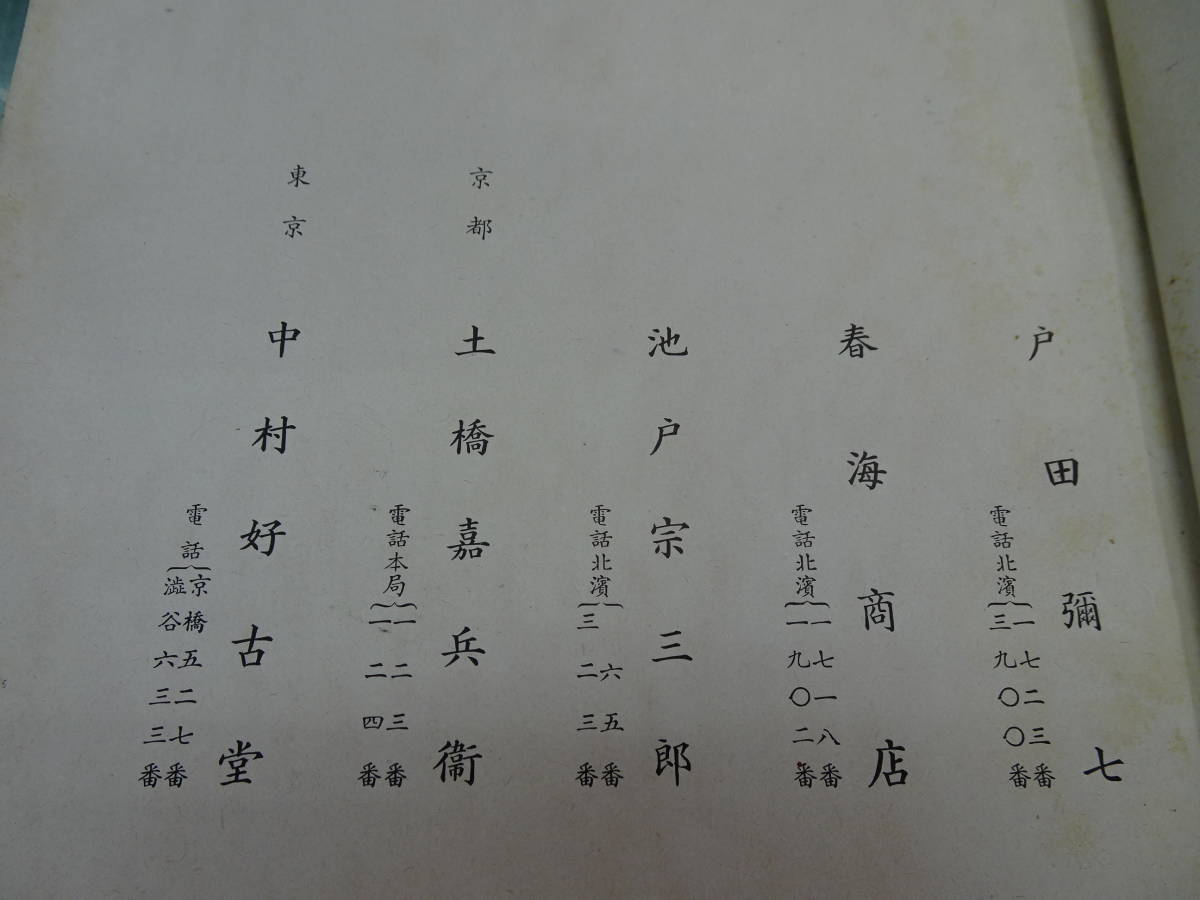 戸田彌七
電話北濱
一七二三番
三九〇〇番
春海商店
電話北濱
一七一八番
一九〇二番
池戸宗三郎
電話北濱
六五番
三二三番
京都 土橋嘉兵衞
電話本局
一二三番
一二四番
東京 中村好古堂
電話
京橋五二七番
澁谷六三三番